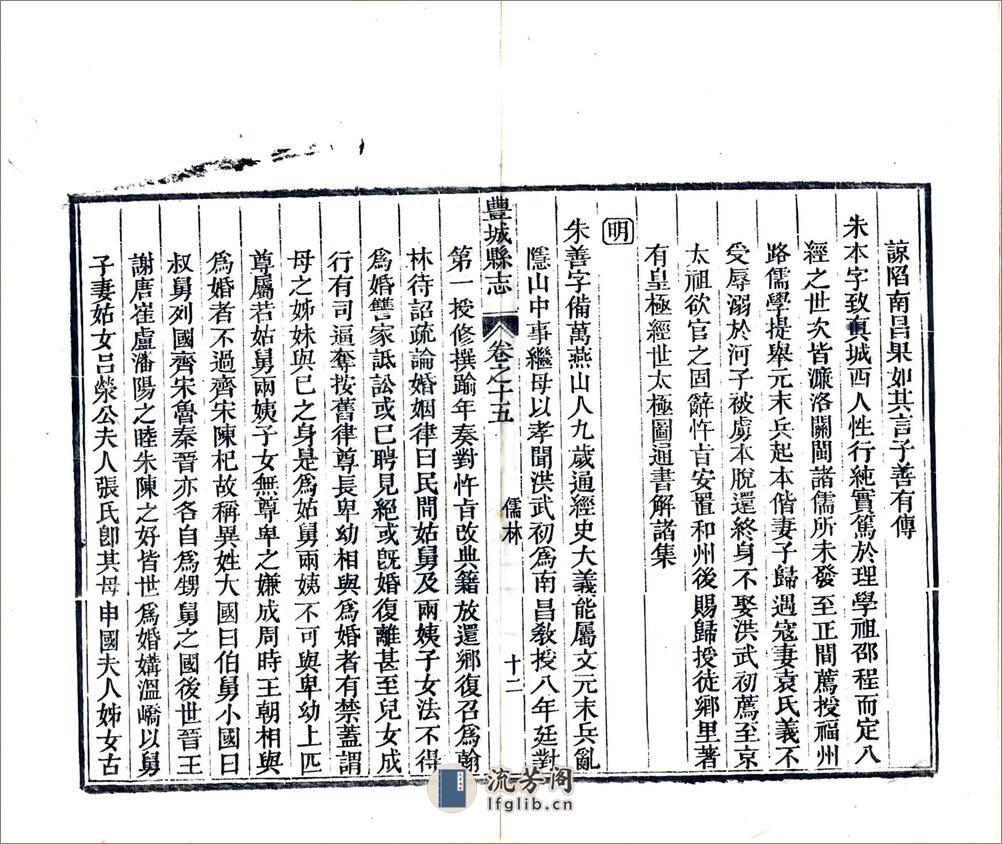 諒陷南昌果如其言子善有傳
朱本字致眞城西人性行純實篤於理學祖邵程而定八
經之世次皆濂洛關閩諸儒所未發至正間薦授福州
路儒學提舉元末兵起本偕妻子歸遇寇妻袁氏義不
受辱溺於河子被虜本脫還終身不娶洪武初薦至京
太祖欲官之固辭忤旨安置和州後賜歸授徒鄉里著
有皇極經世太極圖通書解諸集
明
朱善字備萬燕山人九歲通經史大義能屬文元末兵亂
隱山中事繼母以孝聞洪武初爲南昌敎授八年廷對
豐城縣志
卷之十五
儒林
十二
第一授修撰踰年奏對忤旨改典籍放還鄉復召爲翰
林待詔疏論婚姻律曰民間姑舅及兩姨子女法不得
爲婚讐家詆訟或已聘見絕或旣婚復離甚至兒女成
行有司逼奪按舊律尊長卑幼相與爲婚者有禁蓋謂
母之姊妹與已之身是爲姑舅兩姨不可與卑幼上匹
尊屬若姑舅兩姨子女無尊卑之嫌成周時王朝相與
爲婚者不過齊宋陳杞故稱異姓大國曰伯舅小國曰
叔舅列國齊宋魯秦晉亦各自爲甥舅之國後世晉王
謝唐崔盧潘陽之睦朱陳之好皆世爲婚媾溫嶠以舅
子妻姑女呂榮公夫人張氏卽其母申國夫人姊女古
流芳阁
lfglib.cn